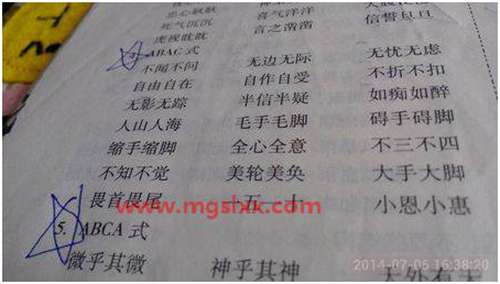 死气沉沉 喜气洋洋
虎视眈眈 言之凿凿 信誓旦旦
ABAC 式
不闻不问 无边无际 无忧无虑
自由自在 自作自受 不折不扣
无影无踪 半信半疑 如痴如醉
人山人海 毛手毛脚 碍手碍脚
缩手缩脚 全心全意 不三不四
不知不觉 美轮美奂 大手大脚
畏首畏尾 小恩小惠
www.mgslxk.com
5. ABCA 式
微乎其微 神乎其神 天外有天
2014-07-05 16:38:20